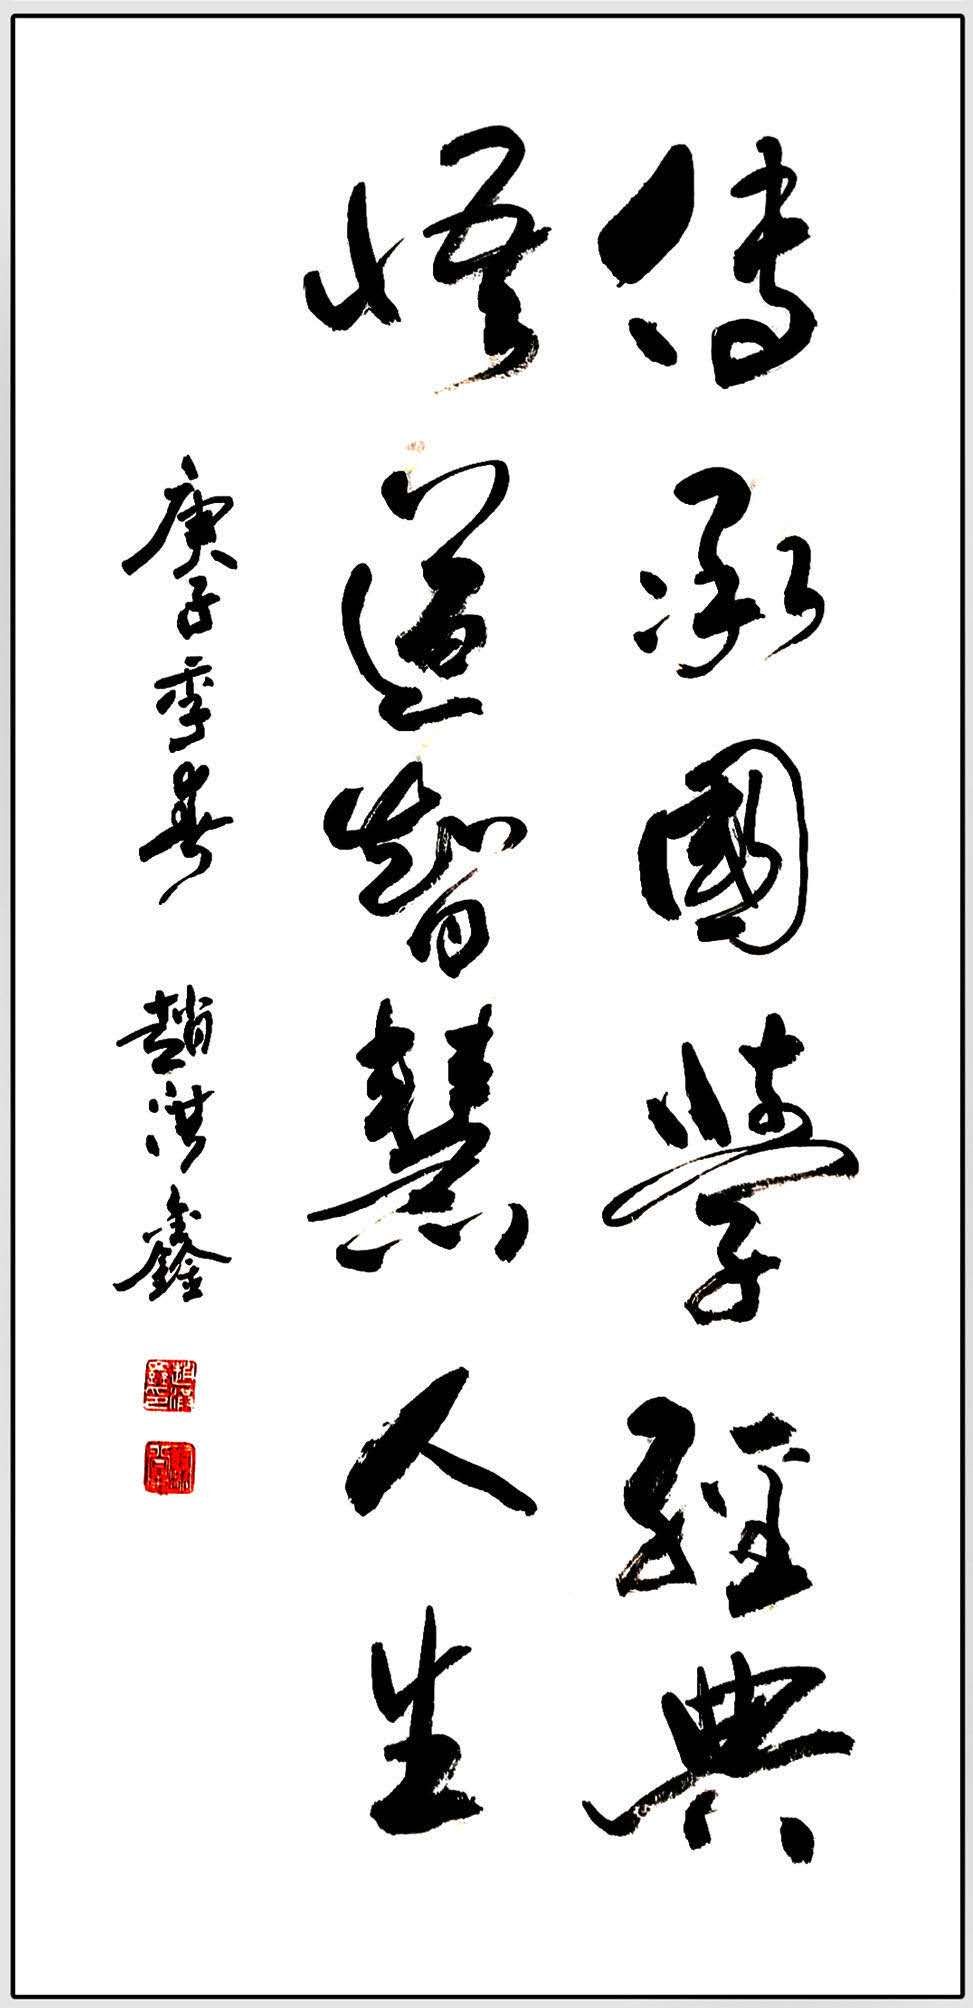 傳承國學經典
悟道智慧人生
庚子季春 趙洪鑫